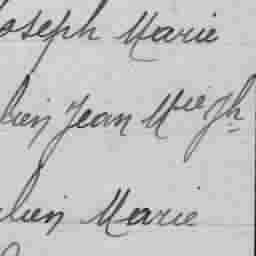 Joseph Marie
lien Jean Mie Jh
lien Marie